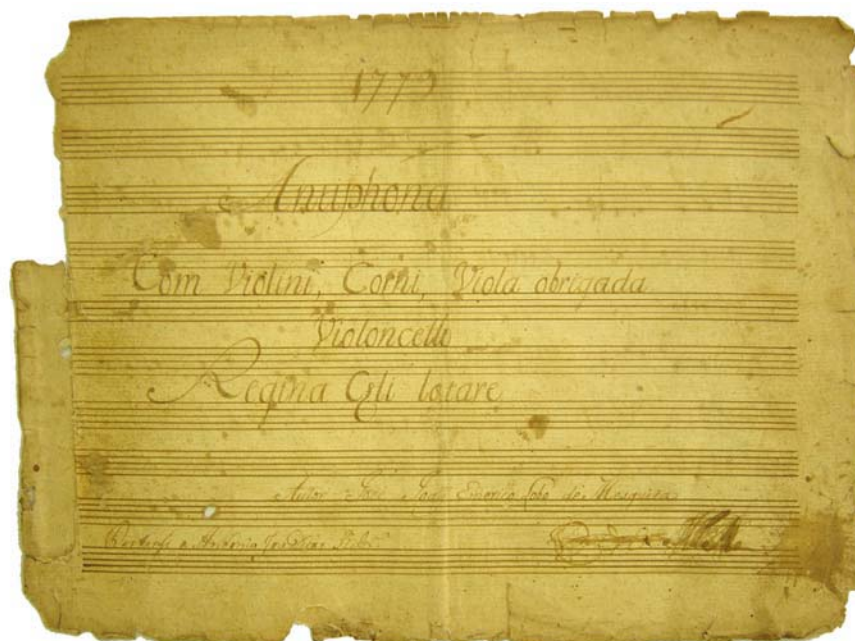 1779
Antiphona
Com Violini, Corni, Viola obrigada
Violoncello
Regina Cæli lætare
Autor José Joaq Emerico Lobo de Mesquita
a Antonio